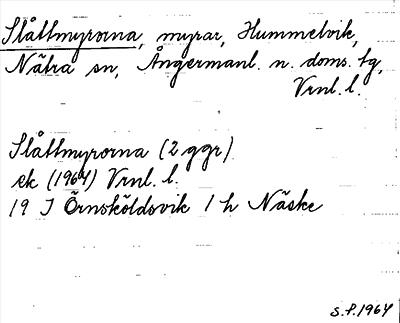 Slåttmyrorna, myrar, Hummelvik,
Nätra sn, Ångermanl. n. doms. tg,
Vrnl. l.
Slåttmyrorna (2 ggr)
ek (1964) Vrnl. l.
19 J Örnsköldsvik 1 h Näske
S.F. 1964